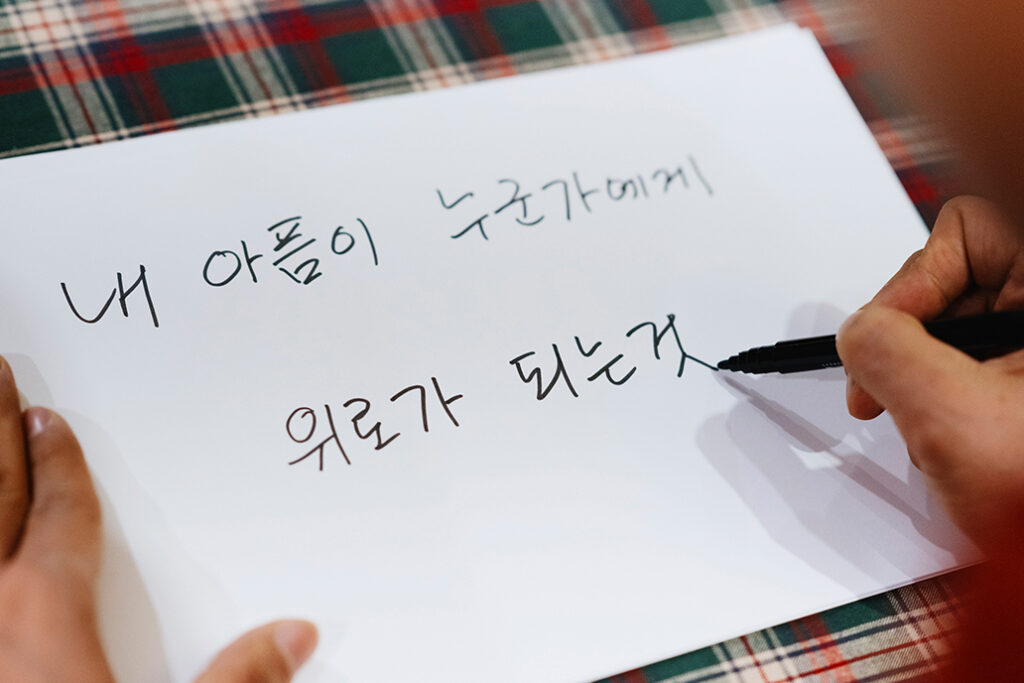 내 아픔이 누군가에게
위로가 되는것